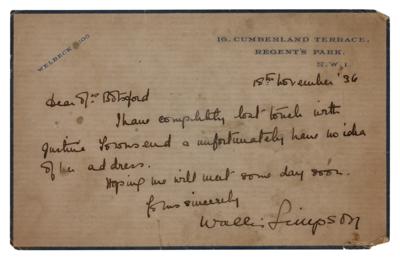 WELBECK
16, CUMBERLAND TERRACE,
REGENT'S PARK,
N.W.1.
18th November '36
Dear Mrs Botsford
I have completely lost touch with
Justine Townsend & unfortunately have no idea
of her address.
Hoping we will meet some day soon.
Yours sincerely
Wallis Simpson